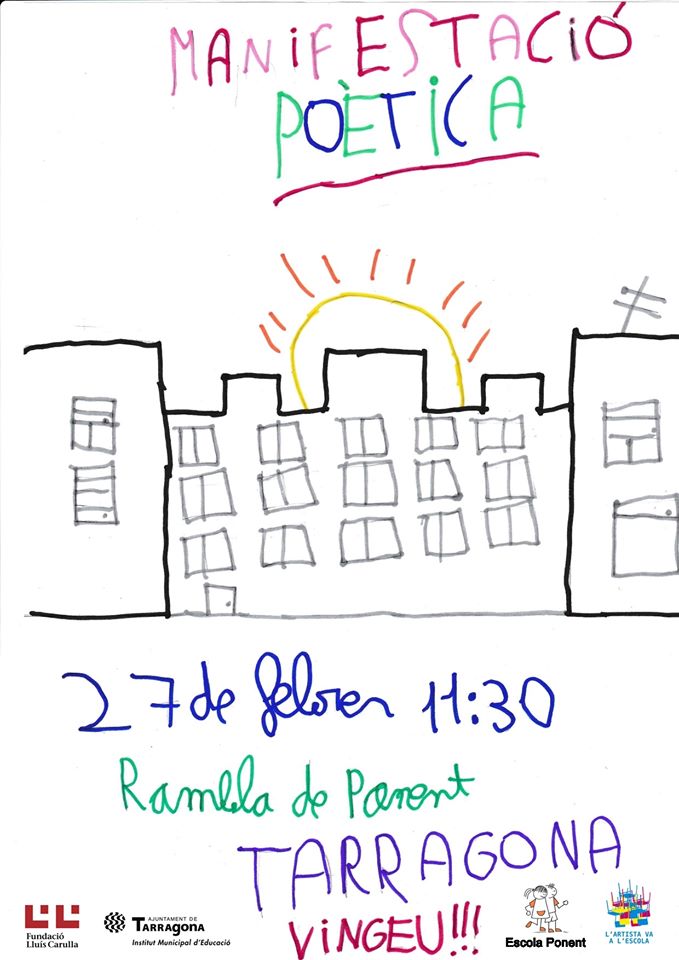 MANiFESTACiÓ
POÈTiCA
27 de febrer 11:30
Rambla de Ponent
TARRAGONA
ViNGEU!!!
Fundació
Lluís Carulla
AJUNTAMENT DE
TARRAGONA
Institut Municipal d'Educació
Escola Ponent
L'ARTISTA VA
A L'ESCOLA